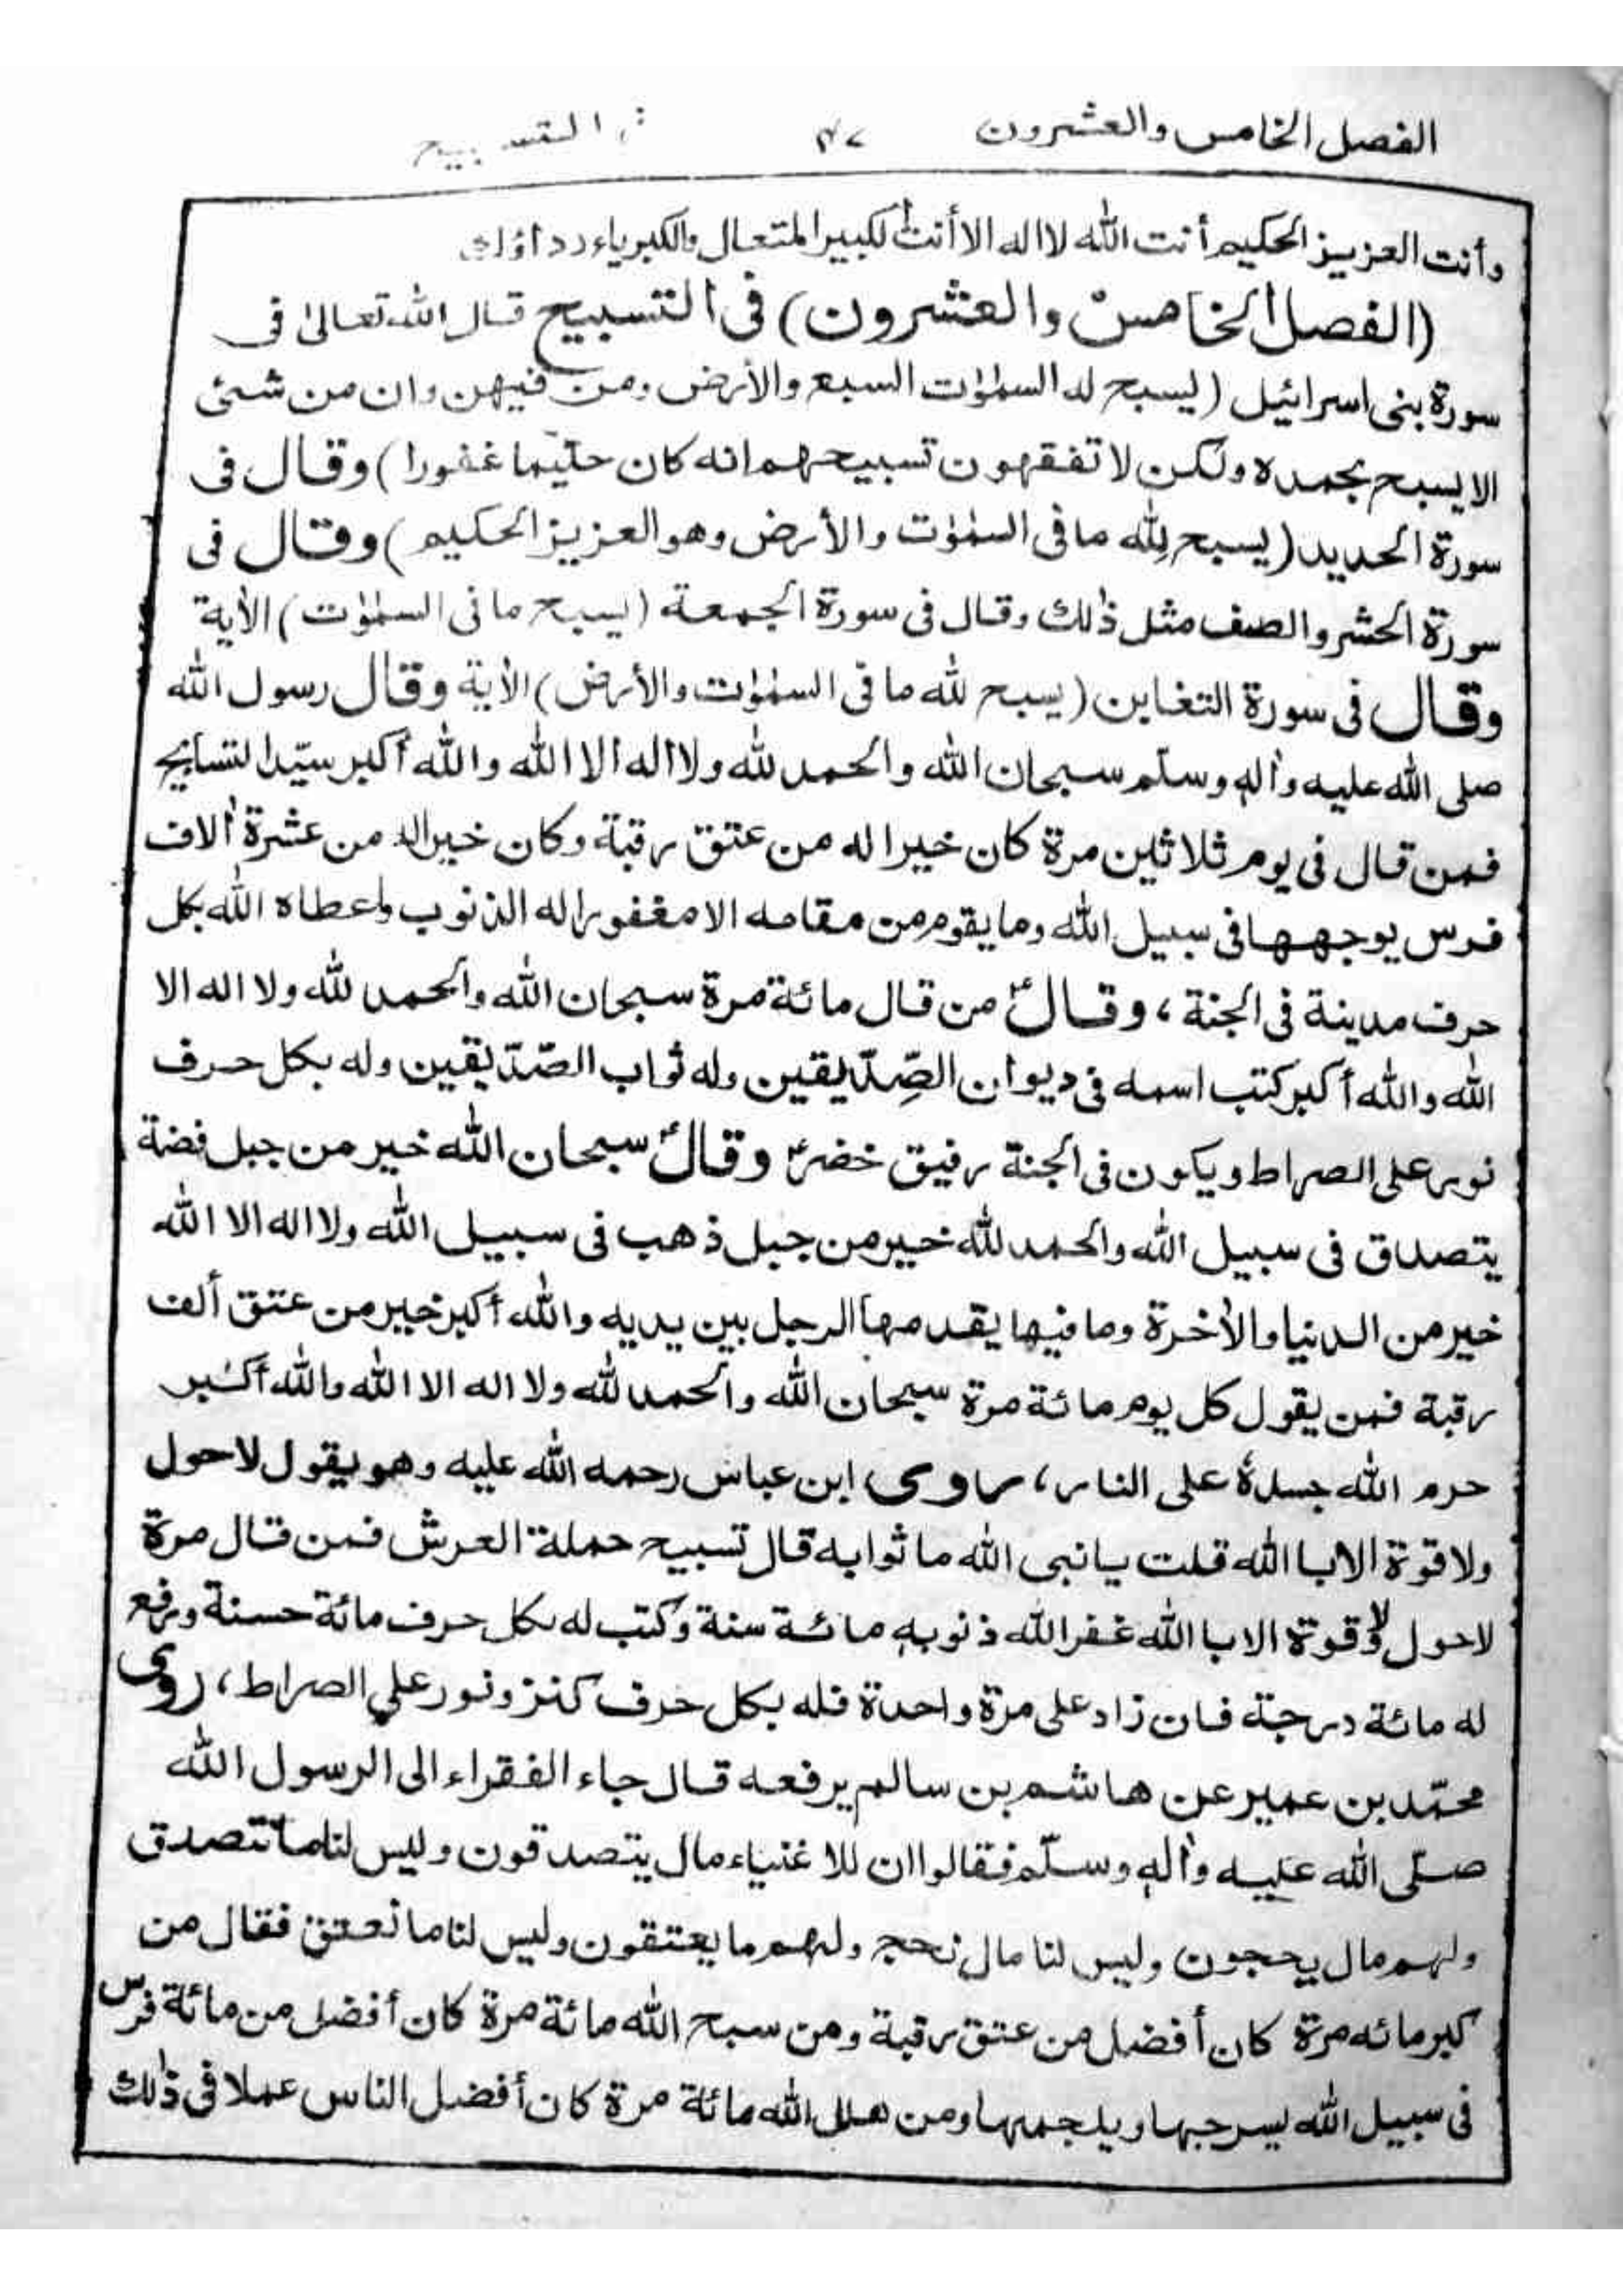 الفصل الخامس والعشرون ٤٧ في التسبيح
وأنت العزيز الحكيم أنت الله لا اله الا أنت الكبير المتعال والكبرياء رداؤك
(الفصل الخامس والعشرون) فى التسبيح قال الله تعالىٰ فى
سورة بنى اسرائيل (يسبح له السمٰوٰت السبع والأرض ومن فيهن وان من شئ
الا يسبح بحمده ولكن لا تفقهون تسبيحهم انه كان حليما غفورا) وقال فى
سورة الحديد (يسبح لله ما فى السمٰوٰت والأرض وهو العزيز الحكيم) وقال فى
سورة الحشر والصف مثل ذٰلك وقال فى سورة الجمعة (يسبح ما فى السمٰوٰت) الأية
وقال فى سورة التغابن (يسبح لله ما فى السمٰوٰت والأرض) الأية وقال رسول الله
صلى الله عليه واٰله وسلّم سبحان الله والحمد لله ولا اله الا الله والله أكبر سيّد التسابيح
فمن قال فى يوم ثلاثين مرة كان خيرا له من عتق رقبة وكان خيرا له من عشرة اٰلاف
فرس يوجهها فى سبيل الله وما يقوم من مقامه الا مغفورا له الذنوب واعطاه الله بكل
حرف مدينة فى الجنة، وقالؐ من قال مائة مرة سبحان الله والحمد لله ولا اله الا
الله والله أكبر كتب اسمه فى ديوان الصّدّيقين وله ثواب الصّدّيقين وله بكل حرف
نور على الصراط ويكون فى الجنة رفيق خضرؑ وقالؐ سبحان الله خير من جبل فضة
يتصدق فى سبيل الله والحمد لله خير من جبل ذهب فى سبيل الله ولا اله الا الله
خير من الدنيا والأخرة وما فيها يقدمها الرجل بين يديه والله أكبر خير من عتق ألف
رقبة فمن يقول كل يوم مائة مرة سبحان الله والحمد لله ولا اله الا الله والله أكبر
حرم الله جسدهٗ على النار، روى ابن عباس رحمه الله عليه وهو يقول لا حول
ولا قوة الا با الله قلت يا نبى الله ما ثوابه قال تسبيح حملة العرش فمن قال مرة
لا حول ولا قوة الا با الله غفر الله ذنوبه مائة سنة وكتب له بكل حرف مائة حسنة ورفع
له مائة درجة فان زاد على مرة واحدة فله بكل حرف كنز ونور علي الصراط، روى
محمّد بن عمير عن هاشم بن سالم يرفعه قال جاء الفقراء الى الرسول الله
صلّى الله عليه واٰله وسلّم فقالوا ان للاغنياء مال يتصدقون وليس لنا ما نتصدق
ولهم مال يحجون وليس لنا مال نحج ولهم ما يعتقون وليس لنا ما نعتق فقال من
كبر مائه مرة كان أفضل من عتق رقبة ومن سبح الله مائة مرة كان أفضل من مائة فرس
فى سبيل الله يسرجها ويلجمها ومن هلل الله مائة مرة كان أفضل الناس عملا فى ذٰلك